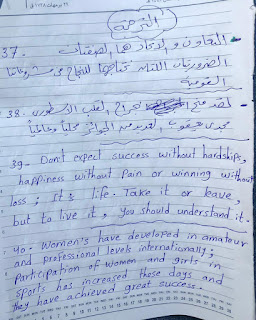 الترجمة
37. التعاون والاتحاد هما الصفتان
الضروريتان اللتان نحتاجهما للنجاح في مشروعاتنا
القومية
38. لقد منح جراح القلب الأسطورى
مجدى يعقوب العديد من الجوائز محلياً وعالمياً
39- Don't expect success without hardships,
happiness without Pain or winning without
loss; It's life. Take it or leave,
but to live it, You should understand it.
40. Women's have developed in amateur
and professional levels internationally;
Participation of women and girls in
sports has increased these days and
they have achieved great success.